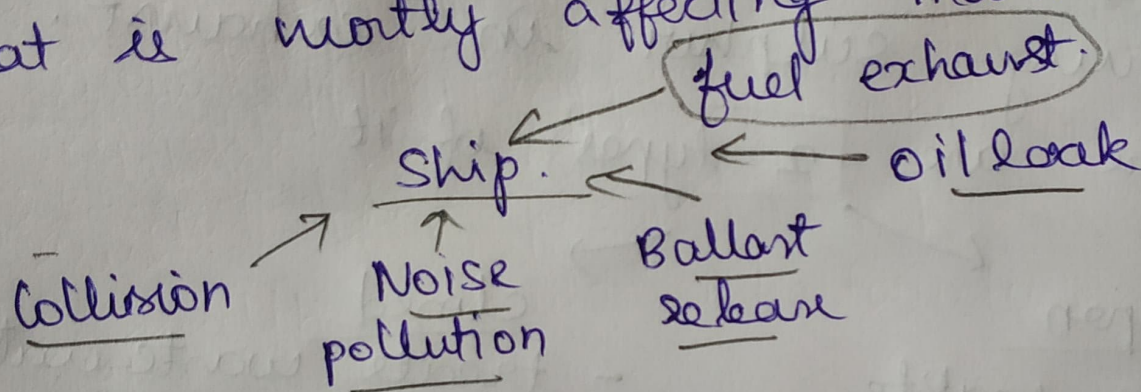 at is mostly affecting
fuel exhaust.
Ship.
oil leak
Collision
Noise
pollution
Ballast
release